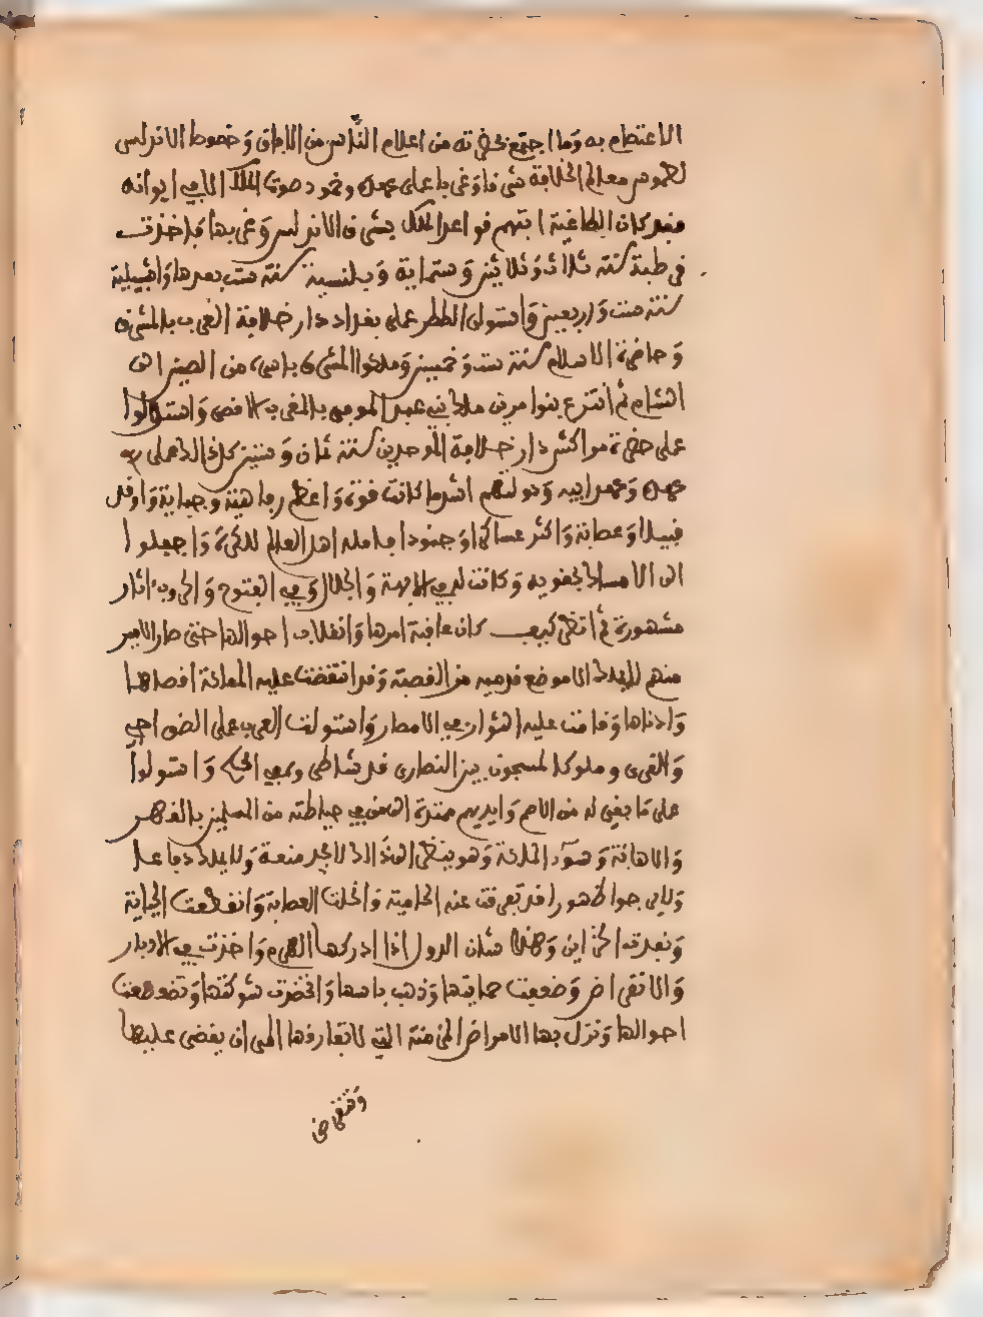 الاعتصام به وما اجتمع بحضرته من اعلام الناس من الافاق وخصوصا الاندلس
لطموس معالم الخلافة شرقا وغربا على عهده وخمود صوت الملك الا في ايوانه
فقد كان الطاغية التهم قواعد الملك بشرق الاندلس وغربها فاخذت
قرطبة سنة ثلاث وثلاثين وستماية وبلنسية سنة ست بعدها واشبيلية
سنة ست واربعين واستولى الططر على بغداد دار خلافة العرب بالمشرق
وحاضرة الاسلام سنة ست وخمسين وملكوا المشرق باسره من الصين الى
الشام ثم انتزع بنوا مرين ملك بني عبد المومن بالمغرب الاقصى واستولوا
على حضرة مراكش دار خلافة الموحدين سنة ثمان وستين كل ذلك على
عهده وعهد ابيه ودولتهم اشد ما كانت قوة واعظم رفاهية وجباية واوفر
قبيلا وعصابة واكثر عساكرا وجنودا يامله اهل العالم للكرة واجفلوا
الى الامساك بحقويه وكانت له في الابهة والجلال وفي الفتوح والحروب ءاثار
مشهورة ثم انظر كيف كان عاقبة امرها وانقلاب احوالها حتى صار الامير
منهم لا يملك الا موضع قدميه من القصبة وقد انتقضت عليه المملكة اقصاها
وادناها وقامت عليه الثوار في الامصار واستولت العرب على الضواحي
والقرى وملوكها لمسجون بين النصارى قد شاطروه في الحكم واستولوا
على ما بقي له من الامر وايديهم ممتدة الى من في حياطته من المسلمين بالقهر
والاهانة وسوء الملكة وهو ينظر الى ذلك لا يجد منعة ولا يملك دفاعا
ولا يرجوا ظهورا قد تفرقت عنه الحامية وانحلت العصابة وانقطعت الجباية
ونفدت الخزاين وهذا شان الدول اذا ادركها الهرم واخذت في الادبار
والانقراض وضعفت حمايتها وذهب باسها وانخضدت شوكتها وتضعضعت
احوالها ونزل بها الامراض المزمنة التي لا تفارقها الى ان يقضى عليها
وتنقرض